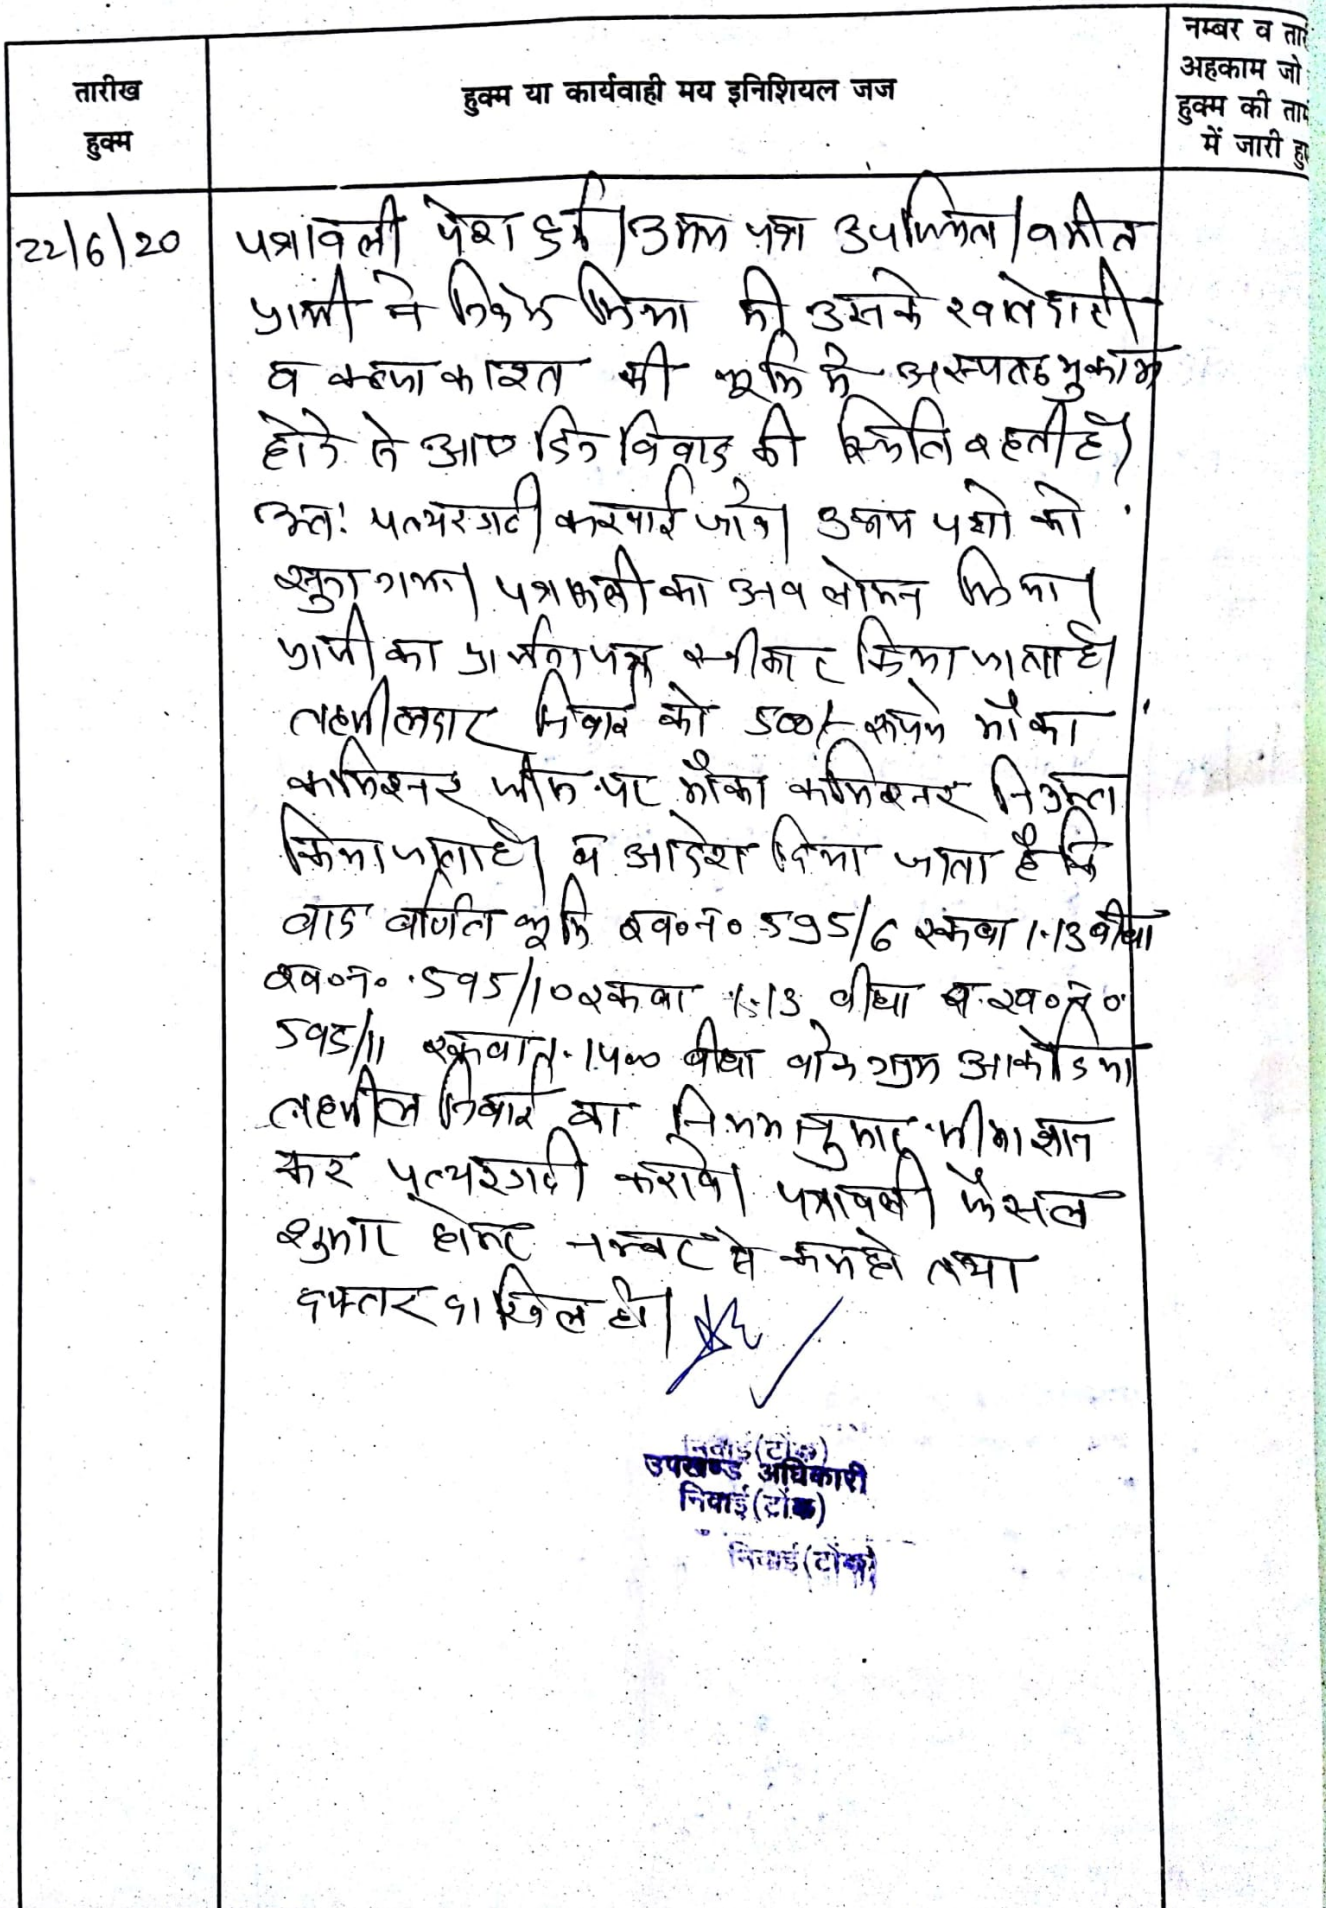 तारीख
हुक्म
हुक्म या कार्यवाही मय इनिशियल जज
नम्बर व तारी
अहकाम जो
हुक्म की ताम
में जारी हु
22/6/20
पत्रावली पेश हुई। उभय पक्ष उपस्थित। वकील
प्रार्थी ने निवेदन किया की उसके खातेदारी
व कब्जा काश्त की भूमि मे
होने से आए दिन विवाद की स्थिति रहती है।
अतः पत्थरगढी करवाई जावे। उभय पक्षो को
सुना गया। पत्रावली का अवलोकन किया।
प्रार्थी का प्रार्थना पत्र स्वीकार किया जाता है।
तहसीलदार निवाई को 500/- रूपये मौका
कमिश्नर फीस पर मौका कमिश्नर नियुक्त
किया जाता है। व आदेश दिया जाता है कि
वाद वर्णित भूमि ख०नं० 595/6 रकबा 1.13 बीघा
ख०नं० 595/10 रकबा 1.13 बीघा व ख०नं०
595/11 बीघा वाके ग्राम
तहसील निवाई का नियमानुसार सीमाज्ञान
कर पत्थरगढी करावे। पत्रावली फैसल
शुमार होकर नम्बर से कम हो तथा
दफ्तर दाखिल हो।
निवाई (टोंक)
उपखण्ड अधिकारी
निवाई (टोंक)
निवाई (टोंक)